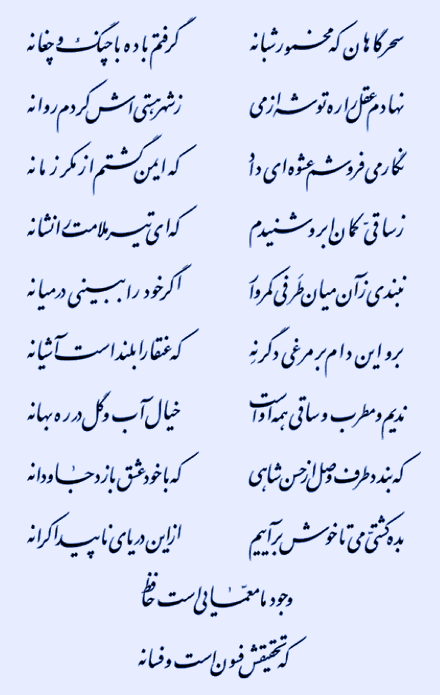 سحرگاهان که مخمور شبانه گرفتم باده با چنگ و چغانه
نهادم عقل را ره توشه از می ز شهر هستی‌اش کردم روانه
نگار می فروشم عشوه‌ای داد که ایمن گشتم از مکر زمانه
ز ساقیّ کمان ابرو شنیدم که ای تیر ملامت را نشانه
نبندی زآن میان طَرفی کمروار اگر خود را ببینی در میانه
برو این دام بر مرغی دگر نِه که عنقا را بلند است آشیانه
ندیم و مطرب و ساقی همه اوست خیال آب و گل در ره بهانه
که بندد طرف وصل از حسن شاهی که با خود عشق بازد جاودانه
بده کشتیّ می تا خوش برآییم از این دریای ناپیدا کرانه
وجود ما معمّایی است حافظ
که تحقیقش فسون است و فسانه